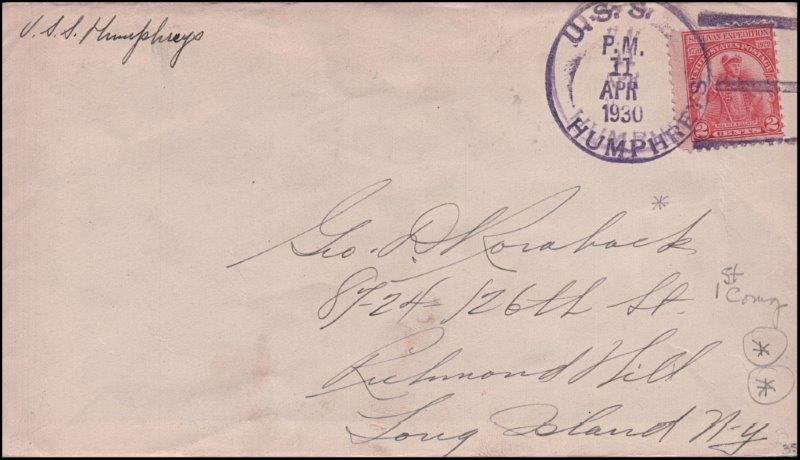 U.S.S. Humphreys
U.S.S.
P.M.
11
APR
1930
HUMPHREYS
SULLIVAN EXPEDITION
1779 1929
UNITED STATES POSTAGE
2 CENTS 2
*
Geo. D. Koraback
87-24-126th St.
Richmond Hill
Long Island N-y
1st Comm
*
*
35